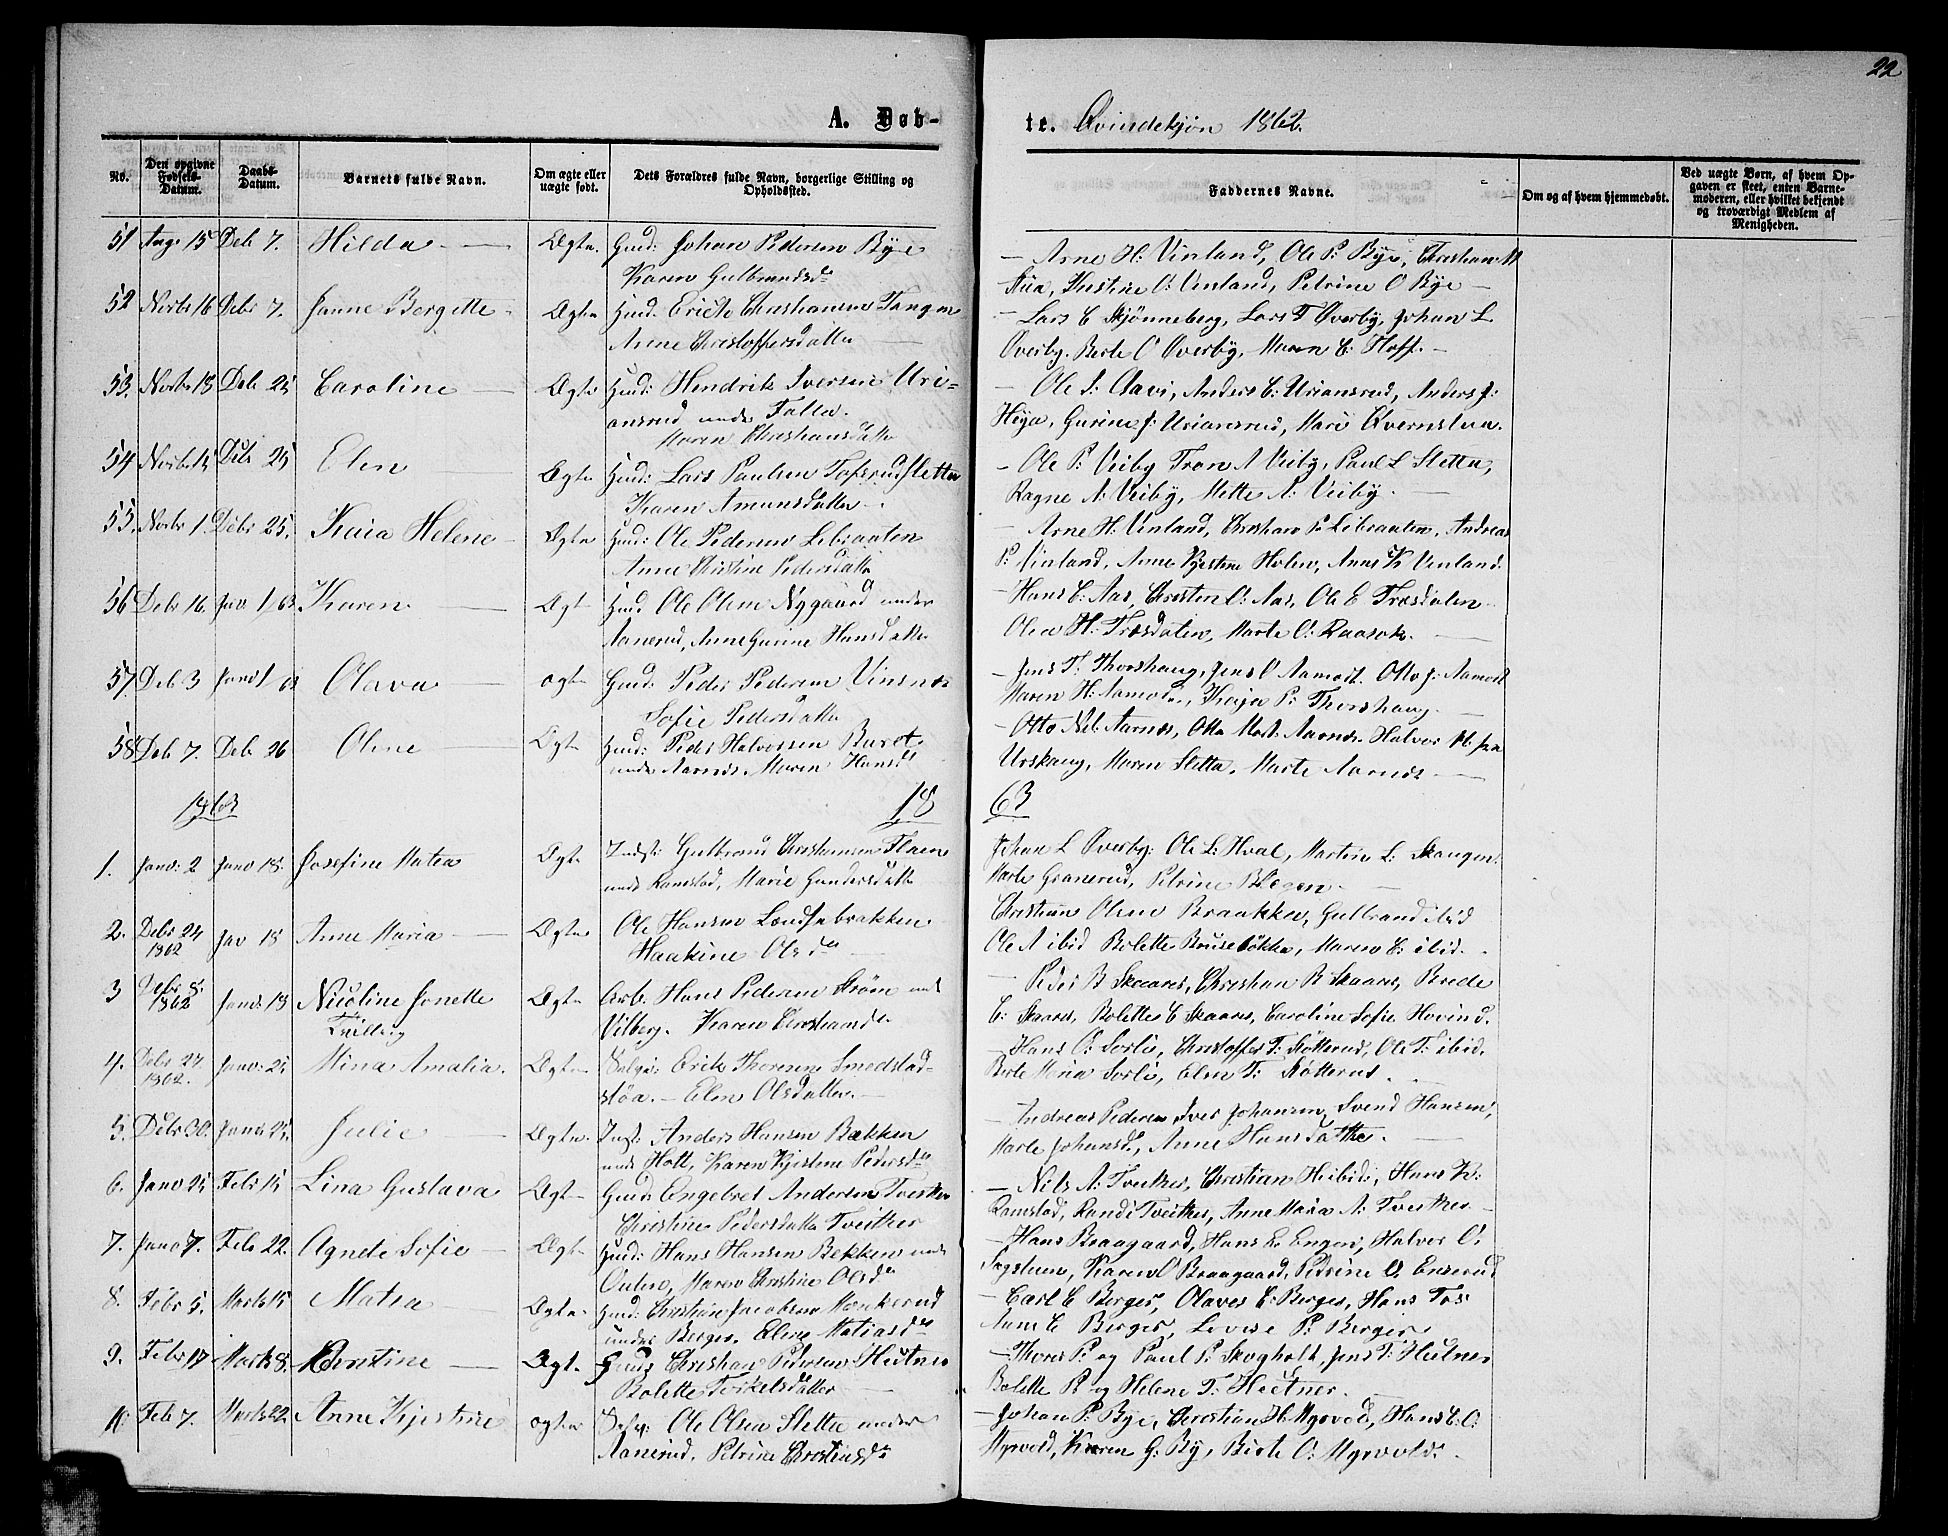 22
A. Døb-
te. Qvindekjøn 1862.
No.
Den opgivne Fødsels-Datum.
Daabs-Datum.
Barnets fulde Navn.
Om ægte eller uægte født.
Dets Forældres fulde Navn, borgerlige Stilling og Opholdssted.
Faddernes Navne.
Om og af hvem hjemmedøbt.
Ved uægte Børn, af hvem Opgaven er skeet, enten Barnemoderen, eller hvilket bekjendt og troværdigt Medlem af Menigheden.
51 Aug. 15 Deb 7. Hilda Ægte Gmd: Johan Pedersen Bye
Karen Gulbrandsd
Arne H: Vinland, Ole P: Bye, Christian
Kristine O: Vinland, Petrine O Bye
52 Novbr 16 Debr 7. Janne Borgette Ægte Gmd. Erick Christiansen Tangen
Anne Christoffersdatter
Lars C Skjønneberg, Lars T Øverby, Johan L.
Øverby. Berte O Øverby, Maren C: Hoff.
53. Novbr 18 Deb 25 Caroline Ægte Gmd: Hendrik Iversen Uri-
ansrud under Falla.
Maren Christiansdatter
Ole I: Anders C: Uriansrud, Anders J:
Gurine J: Uriansrud, Mari Qvernstuen.
54 Novbr 15 Debr 25 Elen Ægte Gmd: Lars Paulsen Tofsrudsletta
Karen Amunsdatter
Ole P: Veiby Tron A Veiby, Paul L Sletta,
Ragne A: Veiby, Mette A: Veiby.
55. Novbr 1. Debr 25. Kaia Helene Ægte Gmd: Ole Pedersen Lebraaten
Anne Christine Pedersdatter
Arne H: Vinland, Christian P: Lebraaten, Andreas
P: Vinland, Anne Kjestine Holen, Anne K Vinland
56 Debr 16. Jan 1, 63 Karen Ægt Gmd Ole Olsen Nygaard under
Aanerud, Anne Gurine Hansdatter
Hans C: Aas, Christen O: Aas, Ole E Træsdalen
Olea H: Træsdalen, Marte O: Raasok.
57 Deb 3 Janr 1 63 Olava ægte Gmd: Peder Pedersen Vinsnes
Sofie Pedersdatter
Jens T. Thorshaug, Jens O Aamodt. Otto J: Aamodt
Maren H: Aamodt, Kaja P: Thorshaug.
58 Deb 7. Deb 26 Oline Ægte Gmd: Peder Halvorsen Buret
under Aarnes, Maren Hansd
Otto Nil: Aarnes, Otto Mart: Aarnes. Halvor H. fra
Urskaug, Maren Sletta, Marte Aarnes
1863
18 63
1. Janr: 2 Janr 18. Josefine Matea Ægte Indst: Gulbrand Christiansen Flaen
under Ramstad, Marie Gundersdatter
Johan L Øverby. Ole L: Hval, Martin L: Skaugen.
Marte Granerud, Petrine
2. Debr 24 1862 Jan 18 Anne Maria Ægte Ole Hansen
Haakine Olsd
Christian Olsen Braakka, Gulbrand ibid
Ole A ibid Bolette Maren C: ibid.
3 Debr 8. 1862 Janr: 18 Nicoline Jonette
Tvilling Ægte Arb: Hans Pedersen Strøm under
Vilberg. Karen Christiansd
Peder B Skaares, Christian B Skaares, Brede
C: Skaares, Bolette C Skaares, Caroline Sofie Hovind.
4. Debr 27. 1862. Janr: 25 Mina Amalia. Ægte Selge: Erik Thoresen Smedstad-
støa. Elen Olsdatter.
Hans O: Sorli, Christoffer T: Støtterud, Ole T: ibid.
Berte Maria Sorli, Elen T: Støtterud.
5. Debr 30. Janr 25. Julie Ægte. Inst: Anders Hansen Bakken
under Holt, Karen Kjestine Pedersd
Andreas Pedersen Iver Johansen, Svend Hansen,
Marte Johansd, Anne Hansdatter.
6. Janr 25 Feb: 15 Lina Gustava Ægte Gmd: Engebret Andersen Tveiter
Christine Pedersdatter Tveiter
Nils A: Tveiter, Christian H: ibid:, Hans K:
Ramstad, Randi Tveiter, Anne Maria A: Tveiter.
7. Janr 7. Feb 22. Agnete Sofie Ægte Gmd: Hans Hansen Bekken under
Maren Christine Olsd
Hans Braagaard, Hans E. Engen, Halvor O:
Sagstuen, Karen O Braagaard, Petrine O:
8. Febr 5. Marts 15 Matea Ægte Gmd: Christian Jacobsen Monkerud
under Berger. Eline Matiasd
Carl C Berger, Olaves C: Berger, Hans
Anne C Berger, Lovise P: Berger.
9. Feb 17 Marts 8. Christine Ægte Gmd: Christian Pedersen
Bolette Torkelsdatter
Thores P: og Paul P: Skogholt, Jens T:
Bolette P. og Helene T:
10. Feb 7. Marts 22 Anne Kjerstine ægte Selg: Ole Olsen Slette under
Aanerud, Petrine Christensd
Johan P: Bye, Christian H: Myrvold, Hans C. O:
Myrvold, Karen G: By, Berte O: Myrvold.